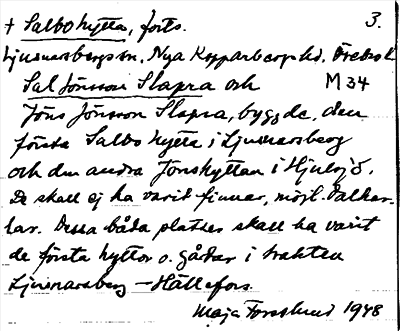 + Salbohytta, forts. 3.
Ljusnarsbergs sn, Nya Kopparbergs hd, Örebro l.
Sal Jönsson Slapra och M34
Jöns Jönsson Slapra, byggde, den
första Salbo hytta i Ljusnarsberg
och den andra Jönshyttan i Hjulsjö.
De skall ej ha varit finnar, möjl. dalkar-
lar. Dessa båda platser skall ha varit
de första hyttor o. gårdar i trakten
Ljusnarsberg – Hällefors.
Maja Forsslund 1948